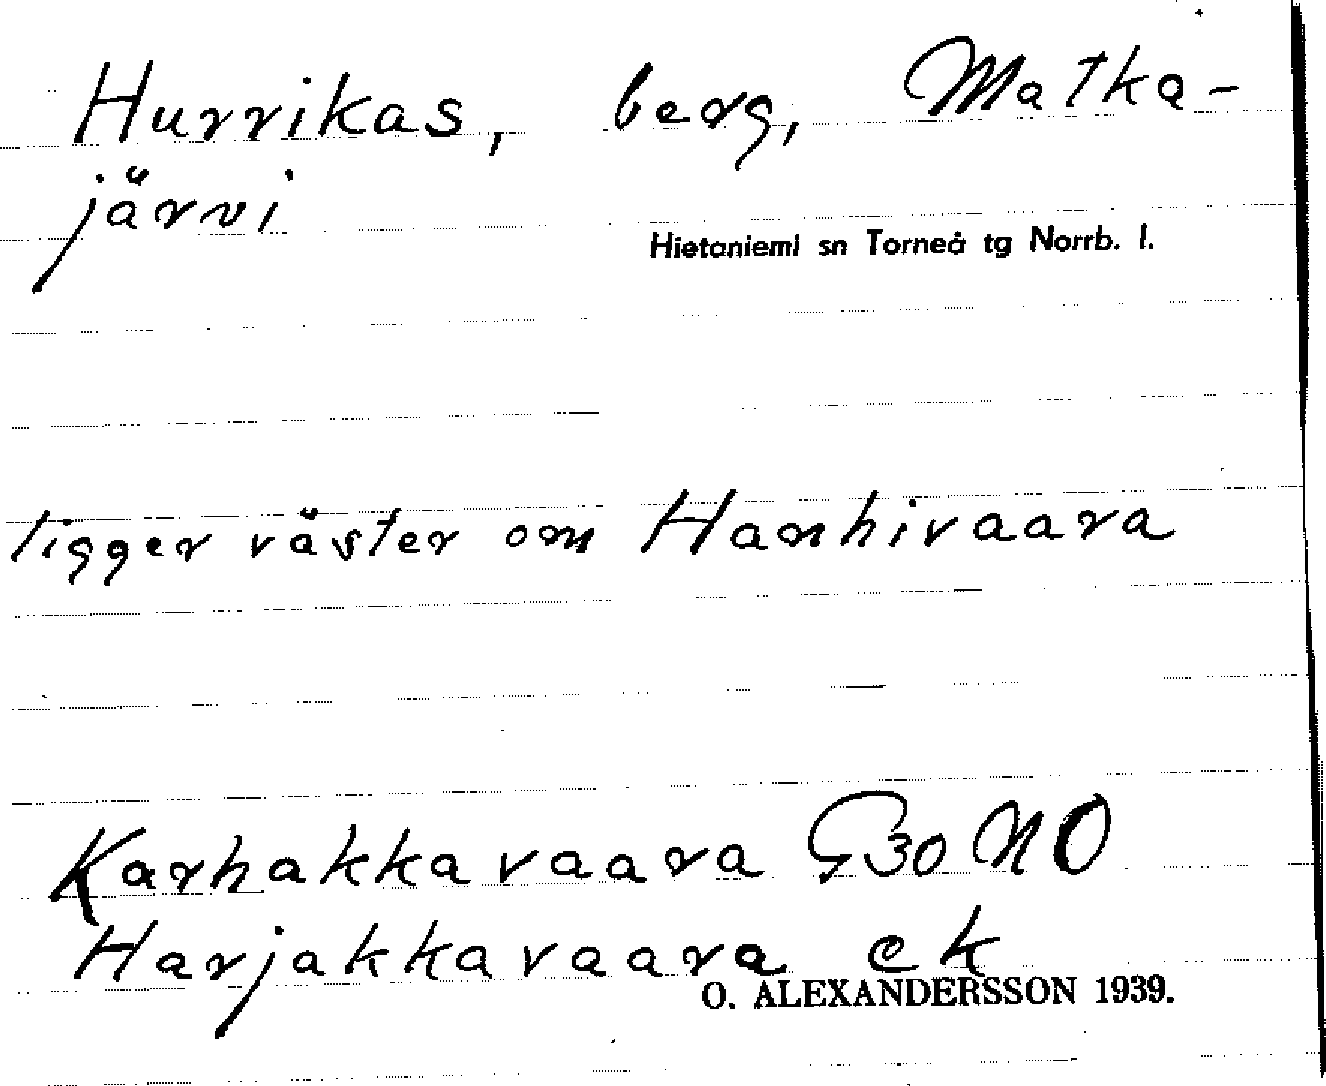 Hurrikas, berg, Matka-
järvi
Hietaniemi sn Torneå tg Norrb. l.
ligger väster om Hanhivaara
Karhakkavaara G30 NO
Harjakkavaara ek
O. ALEXANDERSSON 1939.